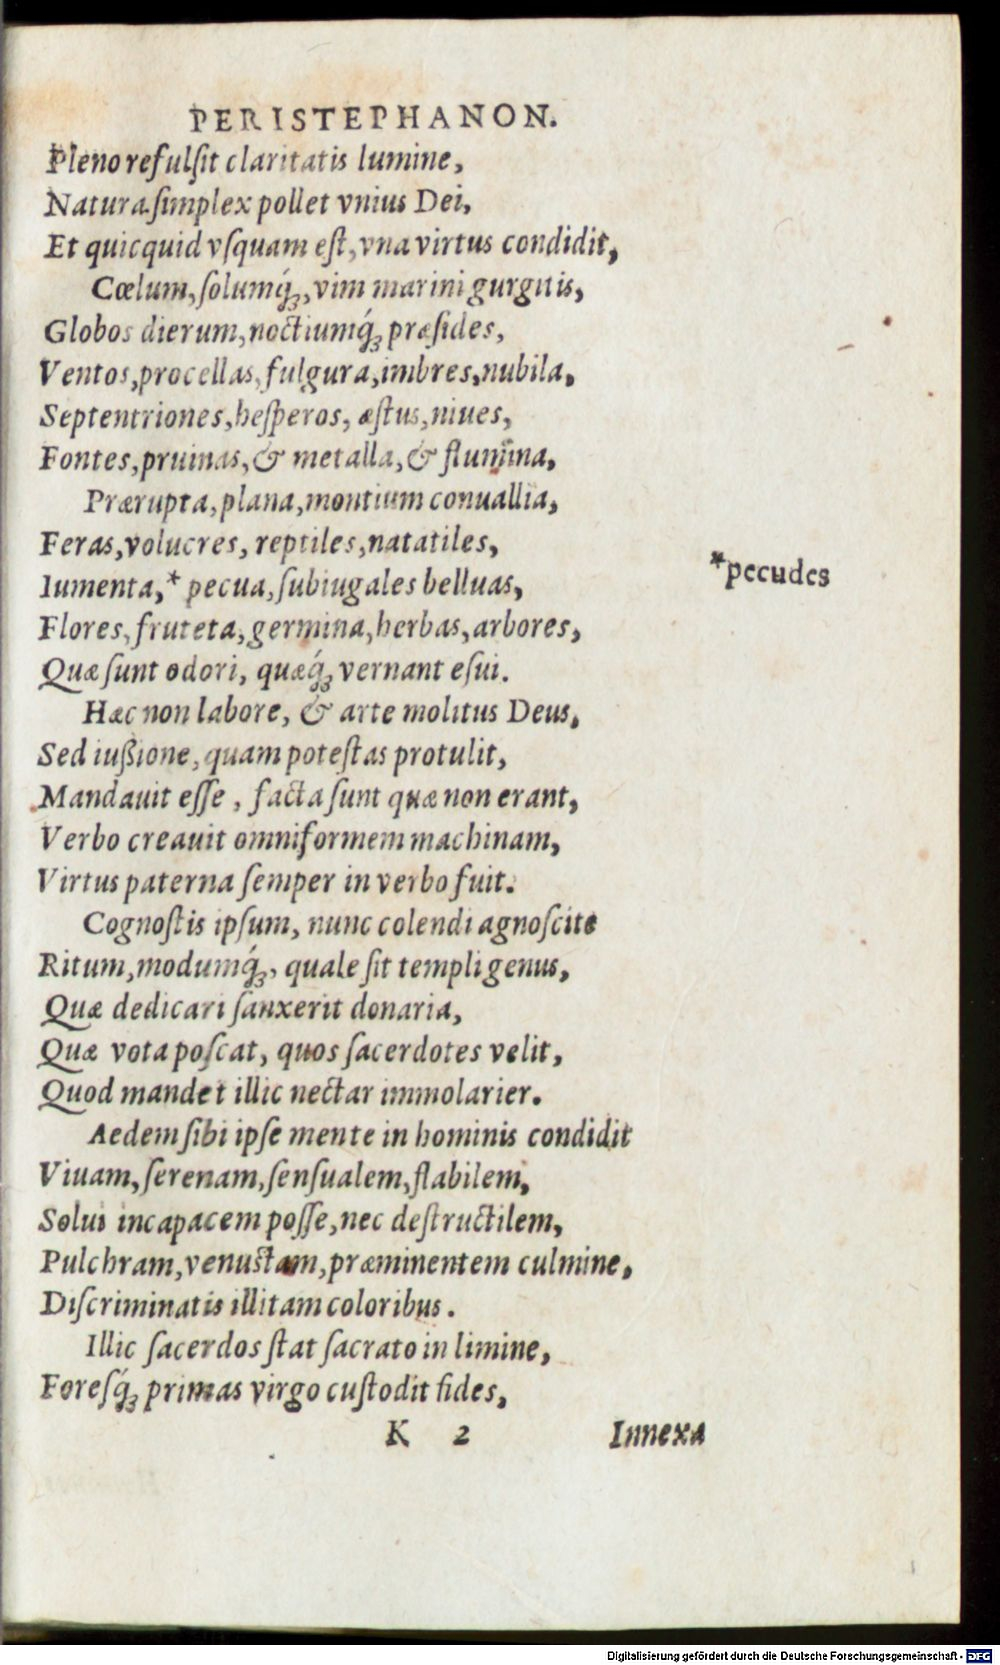 PERISTEPHANON.
Pleno refulſit claritatis lumine,
Natura ſimplex pollet vnius Dei,
Et quicquid vſquam eſt, vna virtus condidit,
Cœlum, ſolumq́;, vim marini gurgitis,
Globos dierum, noctiumq́; præſides,
Ventos, procellas, fulgura, imbres, nubila,
Septentriones, heſperos, æſtus, niues,
Fontes, pruinas, & metalla, & flumina,
Prærupta, plana, montium conuallia,
Feras, volucres, reptiles, natatiles,
Iumenta, * pecua, ſubiugales belluas,
*pecudes
Flores, fruteta, germina, herbas, arbores,
Quæ ſunt odori, quæq́; vernant eſui.
Hæc non labore, & arte molitus Deus,
Sed iußione, quam poteſtas protulit,
Mandauit eſſe, facta ſunt quæ non erant,
Verbo creauit omniformem machinam,
Virtus paterna ſemper in verbo fuit.
Cognoſtis ipſum, nunc colendi agnoſcite
Ritum, modumq́;, quale ſit templi genus,
Quæ dedicari ſanxerit donaria,
Quæ vota poſcat, quos ſacerdotes velit,
Quod mandet illic nectar immolarier.
Aedem ſibi ipſe mente in hominis condidit
Viuam, ſerenam, ſenſualem, flabilem,
Solui incapacem poſſe, nec deſtructilem,
Pulchram, venuſtam, præminentem culmine,
Diſcriminatis illitam coloribus.
Illic ſacerdos ſtat ſacrato in limine,
Foreſq́; primas virgo cuſtodit fides,
K 2 Innexa
Digitalisierung gefördert durch die Deutsche Forschungsgemeinschaft - DFG